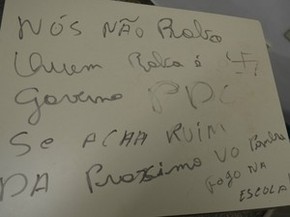 NÓS NÃO ROBA
QUEM ROBA É
GOVERNO PDC
SE ACHA RUIM
DA PROXIMO VO
FOGO NA
ESCOLA